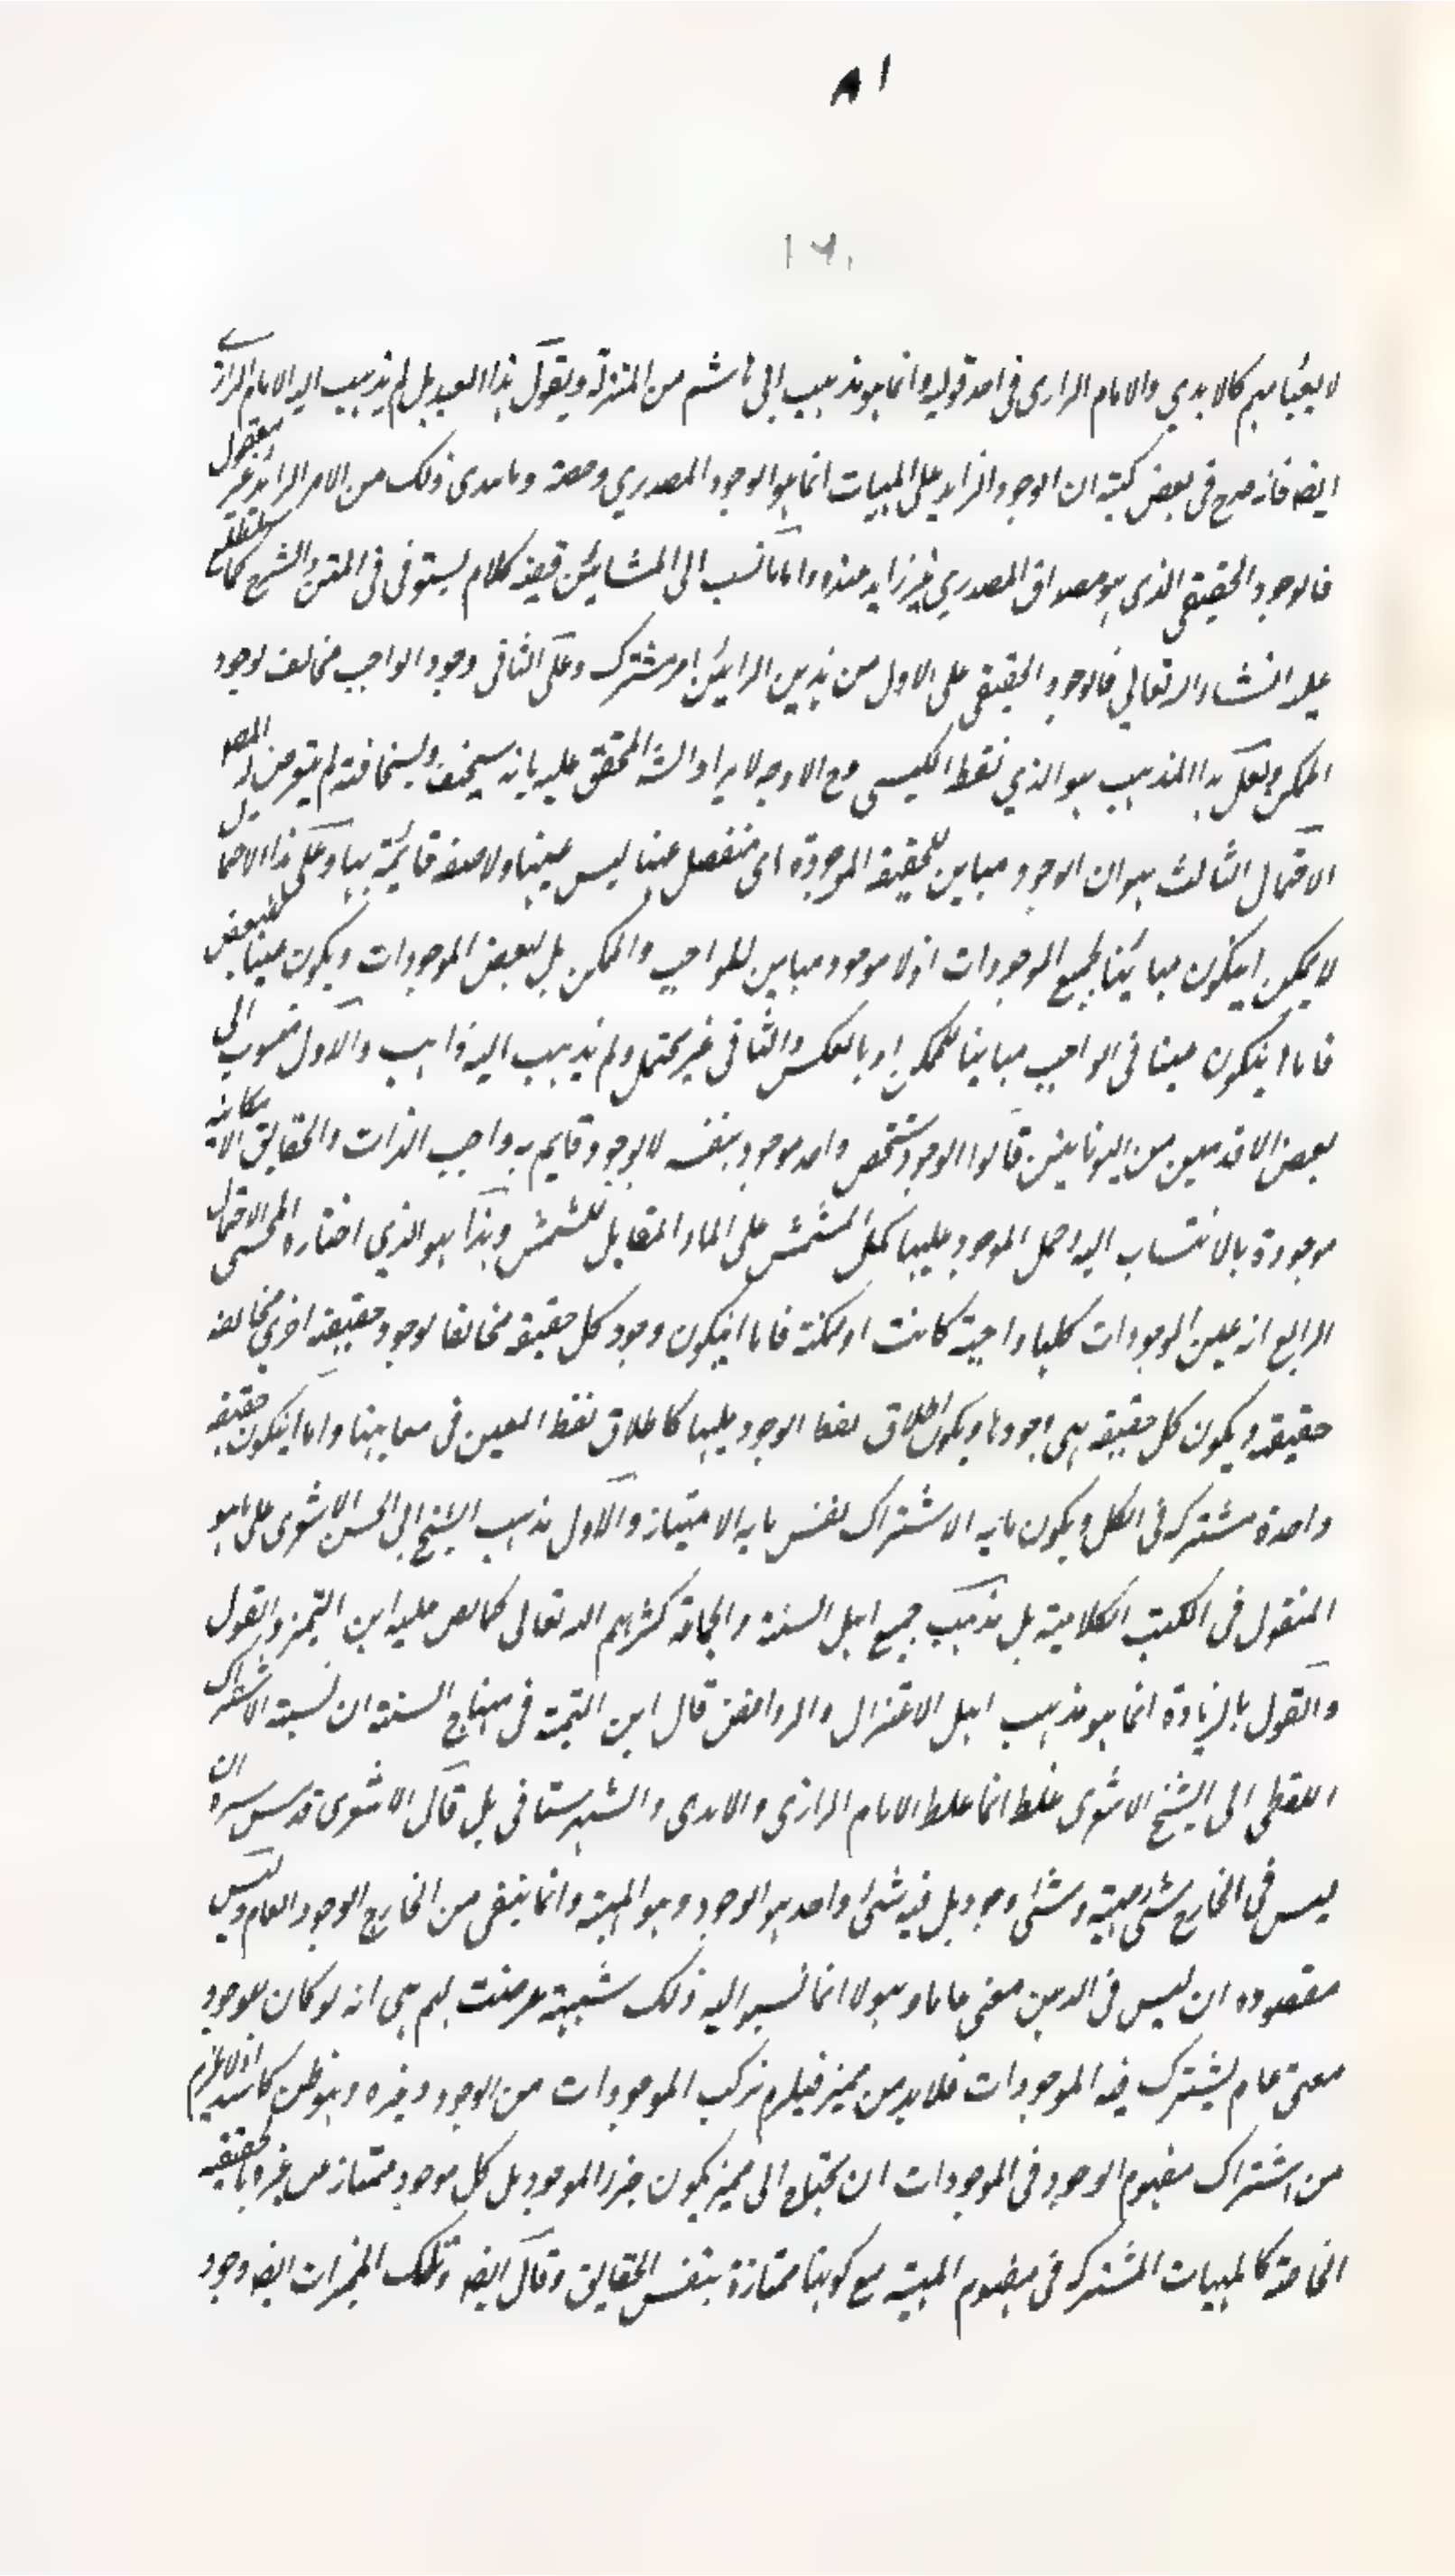 ٨١
١٦٠
لا يعبأ بهم كالامدي والامام الرازي في احد قوليه وانما هو مذهب ابي هاشم من المعتزلة ويقول هذا العبد بل لم يذهب اليه الامام الرازي
ايضا فانه صرح في بعض كتبه ان الوجود الزايد على المهيات انما هو الوجود المصدري وحصة وما عدى ذلك من الامر الزايد غير معقول
فالوجود الحقيقي الذي هو مصداق المصدري غير زايد عنده واما ما نسب الى المشايئن ففيه كلام يستوفى في المتن والشرح كما ستطلع
عليه انشاء الله تعالى فالوجود الحقيقي على الاول من هذين الرايين امر مشترك وعلى الثاني وجود الواجب مخالف لوجود
الممكن ولعل هذا المذهب هو الذي مع الاوجه لايراد الشه المحقق عليه بانه سخيف ولسخافته لم يتعرض له المصـ
الاحتمال الثالث هو ان الوجود مباين للحقيقة الموجودة اى منفصل عنها ليس عينها ولا صفة قائمة بها وعلى هذا الاحتمال
لا يمكن ايكون مباينا لجميع الموجودات اذ لا موجود مباين للواجب والممكن بل لبعض الموجودات ويكون عينا لبعض
فاما ايكون عينا في الواجب مباينا للممكن او بالعكس والثاني غير محتمل ولم يذهب اليه ذاهب والاول منسوب الى
بعض الاقدمين من اليونانيين قالوا الوجود شخص واحد موجود بنفسه لا بوجود قايم به واجب الذات والحقايق الامكانية
موجودة بالانتساب اليه وحمل الموجود عليها كحمل المشمش على الماء المقابل للشمس وهذا هو الذي اختاره المحشي الاحتمال
الرابع انه عين الموجودات كلها واجبة كانت او ممكنة فاما ايكون وجود كل حقيقة مخالفا لوجود حقيقة اخرى مخالفة
حقيقة ويكون كل حقيقة هي وجودها ويكون اطلاق لفظ الوجود عليها كاطلاق لفظ العين في معانيها واما ايكون حقيقة
واحدة مشتركة في الكل ويكون ما به الاشتراك نفس ما به الامتياز والاول مذهب الشيخ ابي الحسن الاشعرى على ما هو
المنقول في الكتب الكلامية بل مذهب جميع اهل السنة والجماعة كثرهم الله تعالى كما نص عليه ابن التيمية والقول
والقول بالزيادة انما هو مذهب اهل الاعتزال والروافض قال ابن التيمية في منهاج السنة ان نسبة الاشتراك
اللفظي الى الشيخ الاشعرى غلط انما غلط الامام الرازي والامدي والشهرستاني بل قال الاشعرى قدس سره ان
ليس في الخارج شئ مهية وشئ وجود بل فيه شئ واحد هو الوجود وهو المهية وانما ينفى من الخارج الوجود العام وليس
مقصوده ان ليس في الذهن معنى عاما وهؤلا انما نسبوا اليه ذلك شبهة عرضت لهم هي انه لو كان للوجود
معنى عام يشترك فيه الموجودات فلا بد من مميز فيلزم تركب الموجودات من الوجود وغيره وهو ظن كاسد اذ لا يلزم
من اشتراك مفهوم الوجود في الموجودات ان يحتاج الى مميز يكون جزء الموجود بل كل موجود ممتاز عن غيره بالحقيقة
الخاصة كالمهيات المشتركة في مفهوم المهية مع كونها ممتازة بنفس الحقايق وقال ايضا وتلك المميزات ايضا وجود